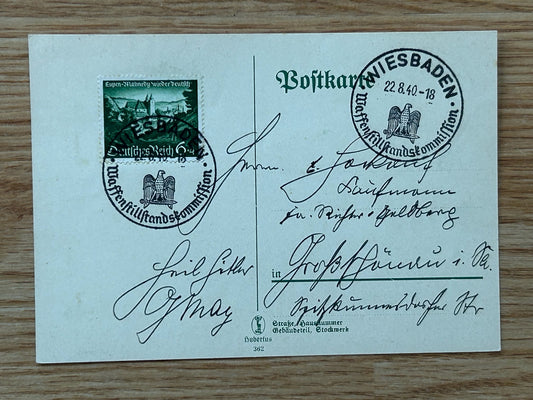 Eupen-Malmedy wieder deutsch
Deutsches Reich 6+4
WIESBADEN
22.8.40-18
Waffenstillstandskommission
Postkarte
WIESBADEN
22.8.40-18
Waffenstillstandskommission
Herrn
Kaufmann
Fa. Richter & Goldberg
in Großschönau i. Sa.
Spitzkunnersdorfer Str
Heil Hitler
GMay
Straße, Hausnummer
Gebäudeteil, Stockwerk
Hubertus
362